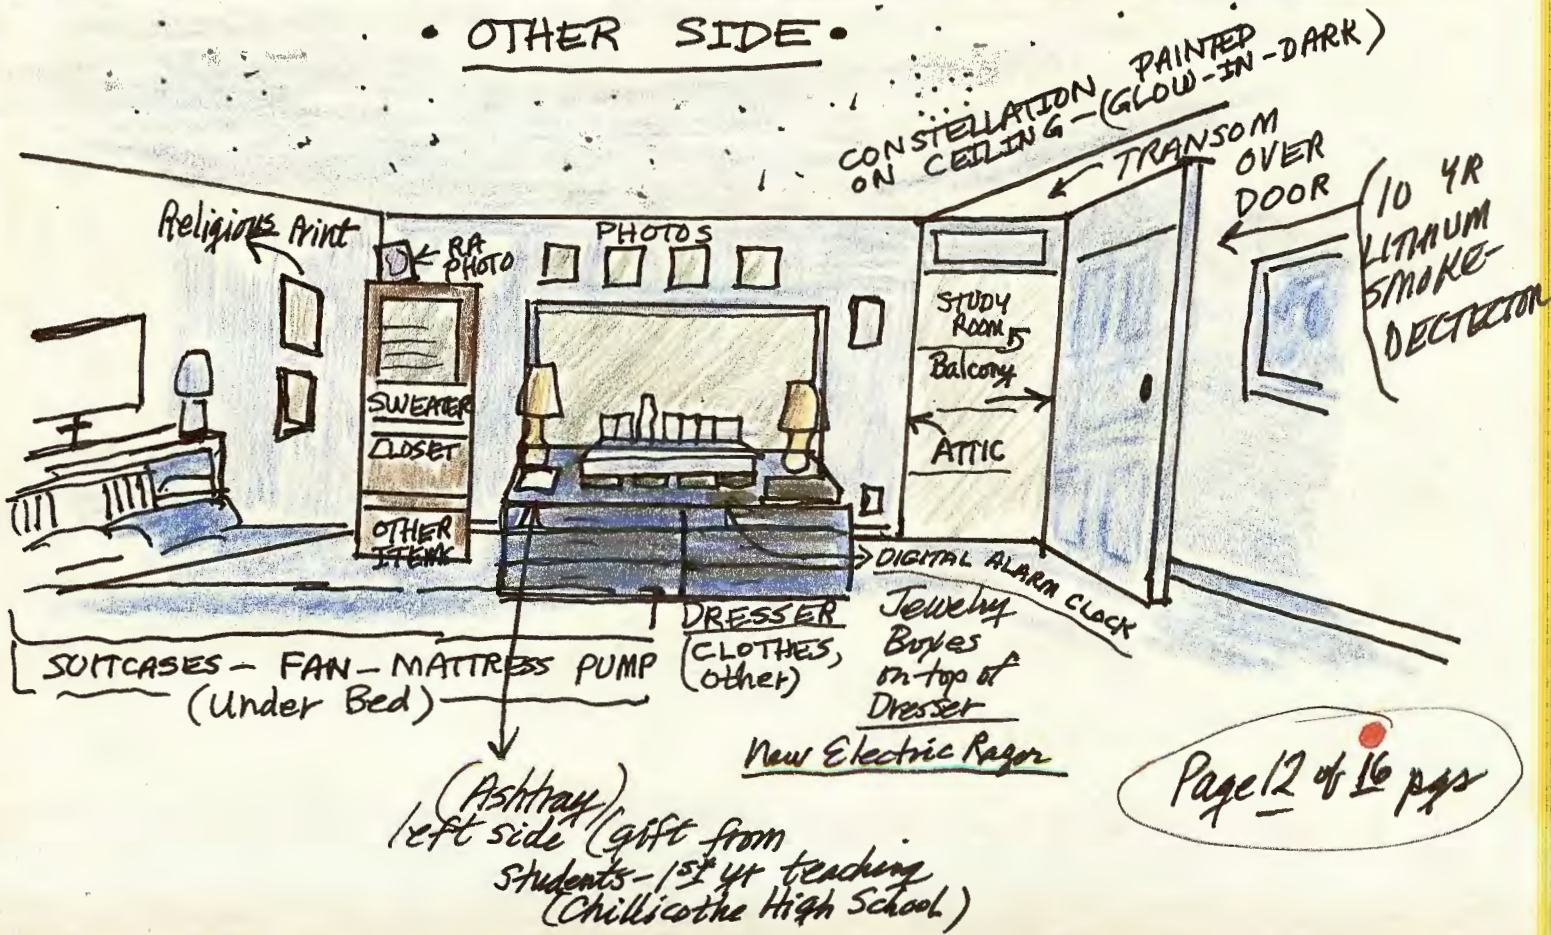 • OTHER SIDE •
CONSTELLATION PAINTED
ON CEILING-(GLOW-IN-DARK)
TRANSOM
OVER
DOOR
10 YR
LITHIUM
SMOKE-
DECTECTOR
Religious Print
RA
PHOTO
PHOTOS
STUDY
ROOM 5
Balcony
ATTIC
SWEATER
CLOSET
OTHER
ITEMS
DIGITAL ALARM CLOCK
SUITCASES - FAN - MATTRESS PUMP
(Under Bed)
DRESSER
(CLOTHES,
other)
Jewelry
Boxes
on top of
Dresser
New Electric Razor
(Ashtray)
left side (gift from
students - 1st yr teaching
(Chillicothe High School)
Page 12 of 16 pgs